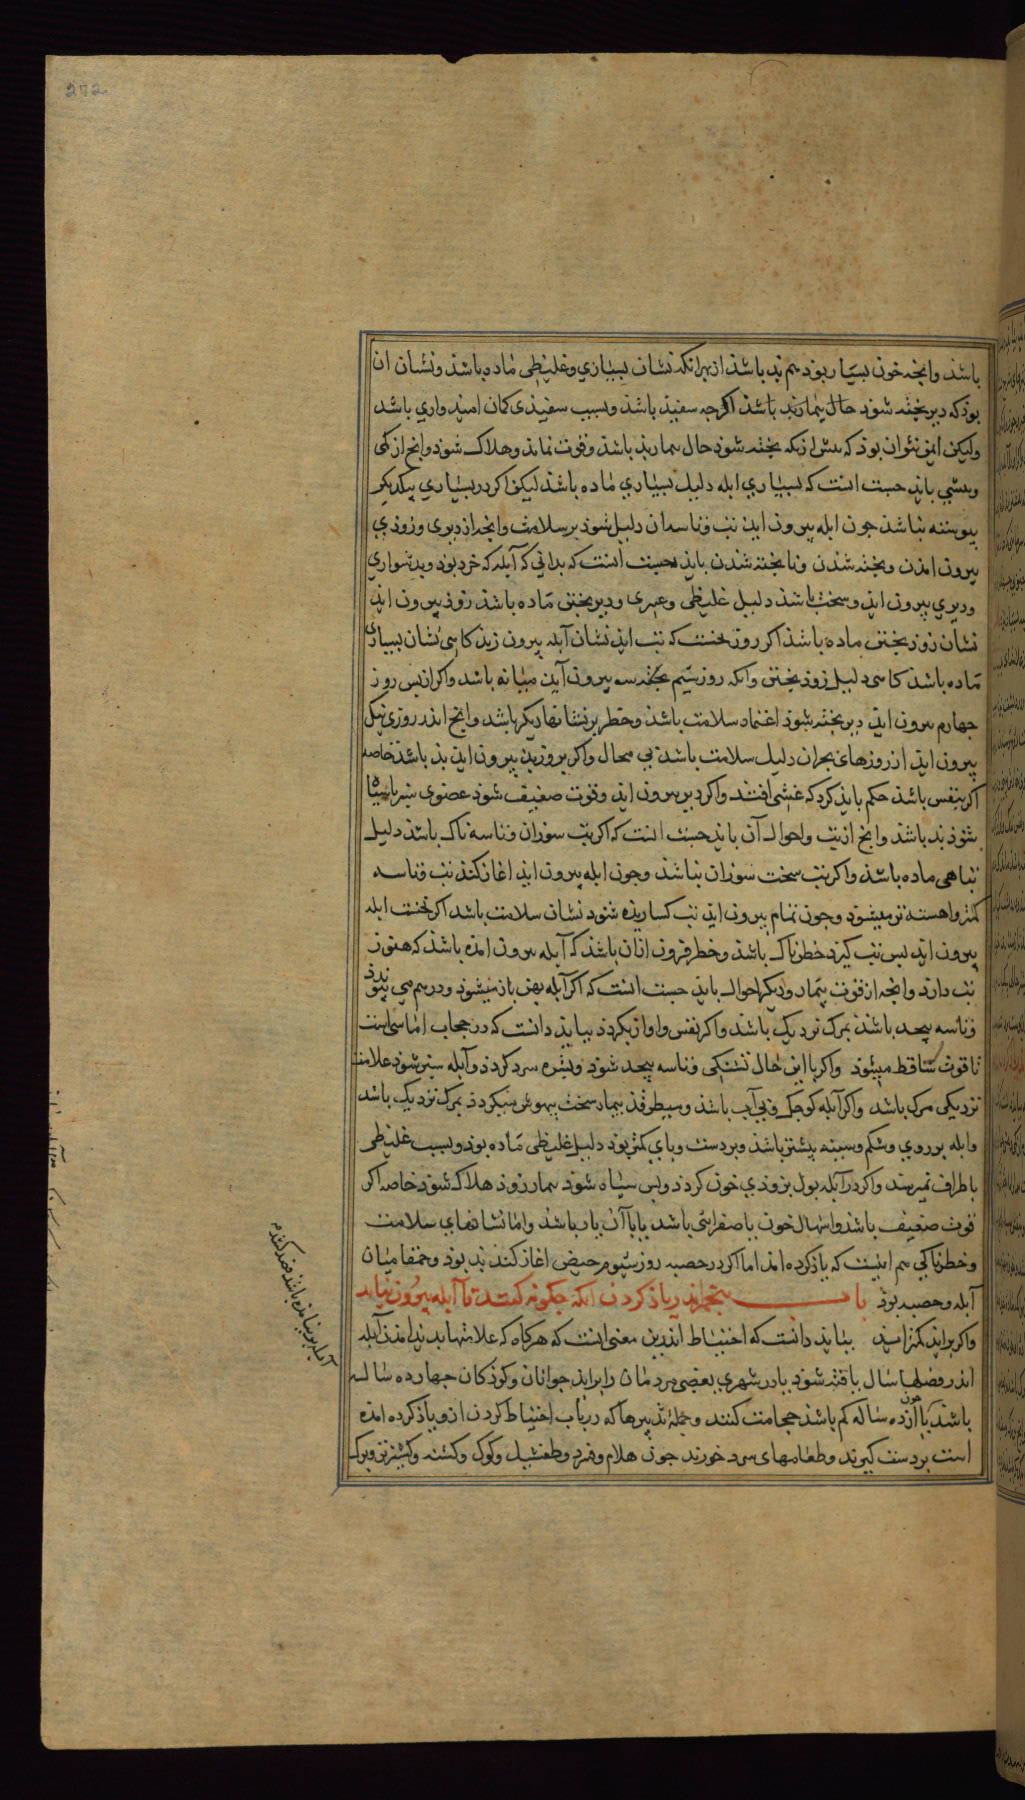 272
باشد وانچه خون بسیار بود هم بد باشد از بهر انکه نشان بسیاری وغلیظی ماده باشد ونشان ان
بود که دیر پخته شود حال بیمار بد باشد اگرچه سفید باشد وبسبب سفیدی کمان امیدواری باشد
ولیکن ایمن نتوان بود که پیش ازانکه پخته شود حال بیمار بد باشد وقوت نماند وهلاک شود وانچ از کمی
وبیشی باید جست انست که بسیاری ابله دلیل بسیاری ماده باشد لیکن اکر در بسیاری بیکدیکر
پیوسته نباشد چون ابله بیرون اید تب وتاسه ان دلیل شود بر سلامت وانچه از دیری وزودی
بیرون امدن وپخته شدن وناپخته شدن باید جست انست که بدانی که آبله که خرد بود وبدشواری
ودیری بیرون اید وسخت باشد دلیل غلیظی و ودیر پختن ماده باشد زود بیرون اید
نشان زود پختن ماده باشد اکر روز نخست که تب اید نشان آبله بیرون زند نشان بسیاری
ماده باشد دلیل زود پختن وانکه روز سیم بیرون آید میانه باشد واکر از پس روز
چهارم بیرون اید دیر پخته شود اعتماد سلامت باشد وخطر بر نشانها دیکر باشد وانچ اندر روزی نیک
بیرون اید از روزهای بحران دلیل سلامت باشد بی محال واکر بروز بد بیرون اید بد باشد خاصه
اکر بنفس باشد حکم باید کرد که غشی افتد واکر دیر بیرون اید وقوت ضعیف شود عضوی سبز یا سیاه
شود بد باشد وانچ از تب واحوال آن باید جست انست که اکر تب سوزان وتاسه ناک باشد دلیل
تباهی ماده باشد واکر تب سخت سوزان نباشد وچون ابله بیرون اید اغاز کند تب وتاسه
کمتر واهسته تر میشود وچون تمام بیرون اید تب کسارنده شود نشان سلامت باشد اکر نخست ابله
بیرون اید پس تب کیرد خطرناک باشد وخطر فزون ازان باشد که آبله بیرون امده باشد که هنوز
تب دارد وانچه از قوت بیمار ودیکر احوال باید جست انست که اکر آبله پهن باز میشود ودرهم می پیوندد
وتاسه بیحد باشد بمرک نزدیک باشد واکر نفس واواز بکردد بباید دانست که در حجاب اماسی است
تا قوت ساقط میشود واکر با این حال تشنکی وتاسه بیحد شود وبشره سرد کردد وآبله سبز شود علامت
نزدیکی مرک باشد واکر آبله کوچک وبی آب باشد ومیطرقد بیمار سخت بیهوش میکردد بمرک نزدیک باشد
وابله بر روی وشکم وسینه بیشتر باشد وبر دست وپای کمتر بود دلیل غلیظی ماده بود وبسبب غلیظی
باطراف نمیرسد واکر در آبله بول بزودی خون کردد وپس سیاه شود بیمار زود هلاک شود خاصه اکر
قوت ضعیف باشد واسهال خون یا صفرایی باشد یا با آن یار باشد واما نشانهای سلامت
وخطرناکی هم اینست که یاد کرده امد اما اکر در حصبه روز سیوم حیض اغاز کند بد بود وحمقا میان
آبله وحصبه بود باب پنجم اندر یاد کردن انکه چکونه کنند تا آبله بیرون نیاید
واکر براید کمتر اید بباید دانست که احتیاط اندرین معنی انست که هرکاه که علامتها پدید امدن آبله
اندر فصلها سال یافته شود یا در شهری بعضی مردمان را براید جوانان وکودکان چهارده ساله
باشد یا ازده ساله کم باشد حجامت کنند وجمله تدبیرها که در باب احتیاط کردن از وبا یاد کرده امده
چون
است بر دست کیرند وطعامهای سرد خورند چون هلام وقریص وطفشیل وکوک وکسنه وکشنیز تر وبرک